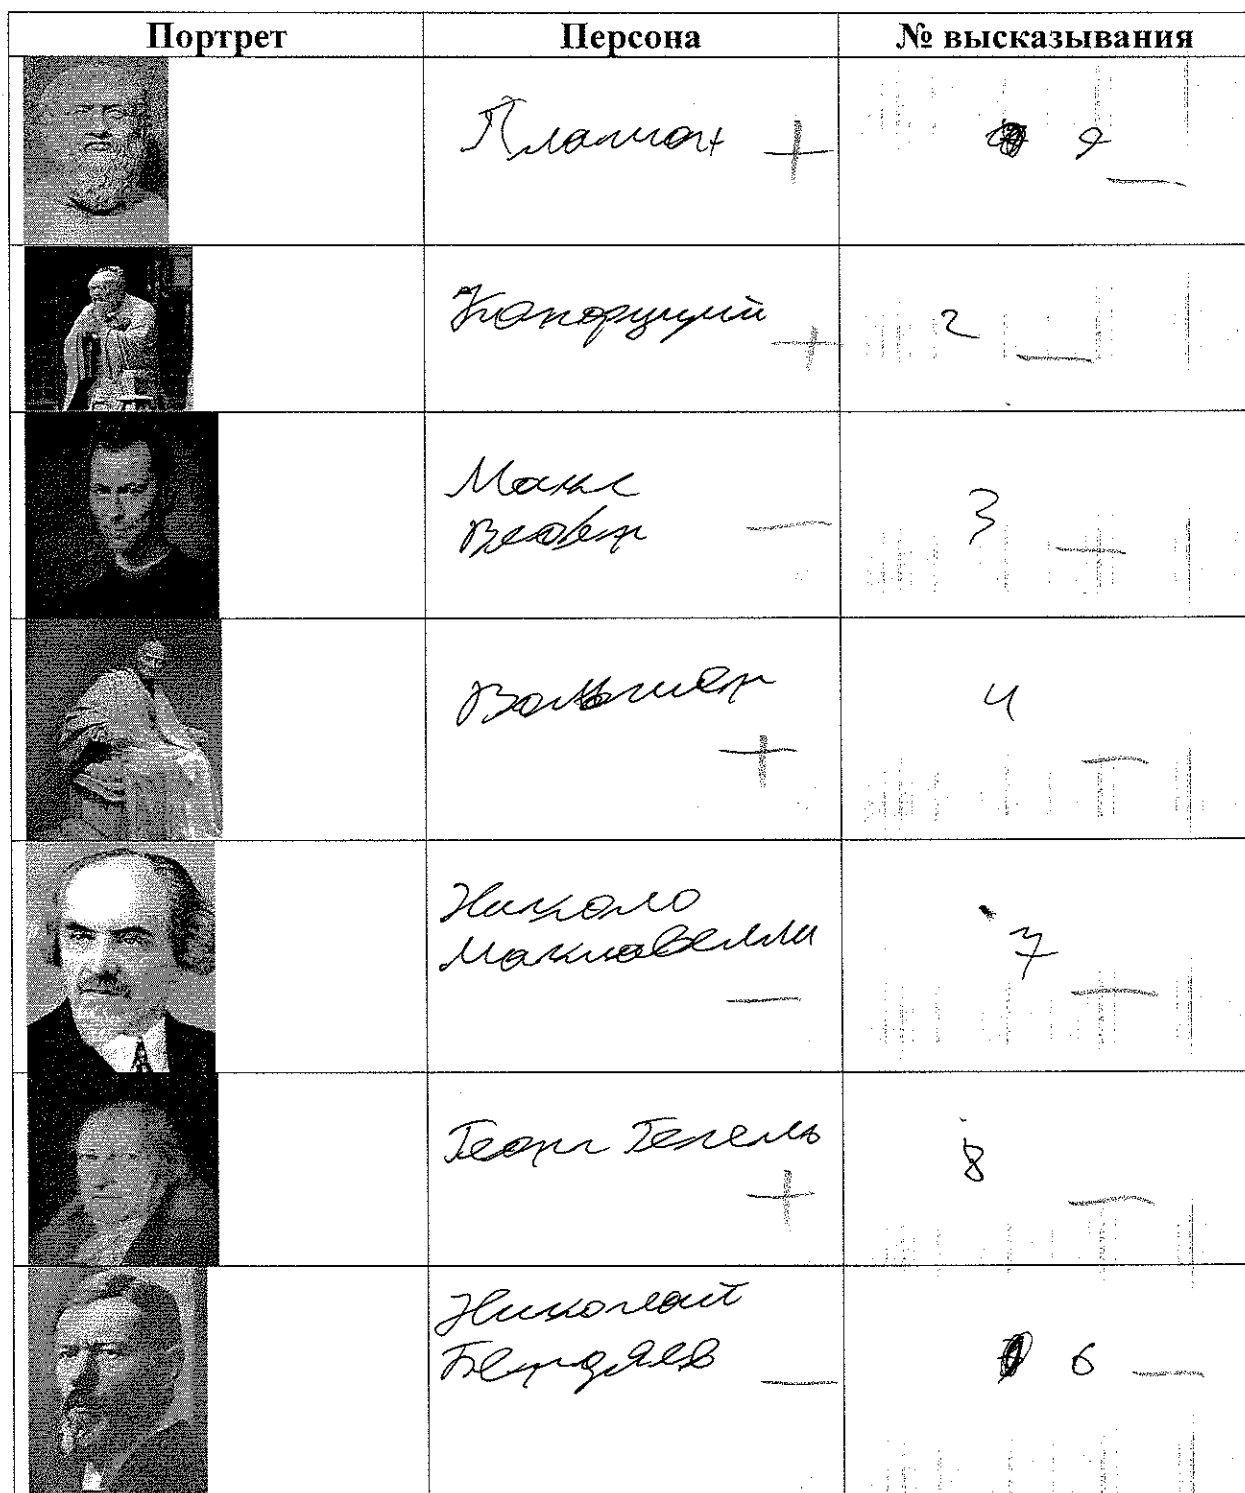 Портрет Персона № высказывания
Платон + 9 —
Конфуций + 2 —
Макс
Вебер — 3 —
Вольтер + 4 —
Николо
Макиавелли — 7 —
Георг Гегель + 8 —
Николай
Бердяев — 6 —